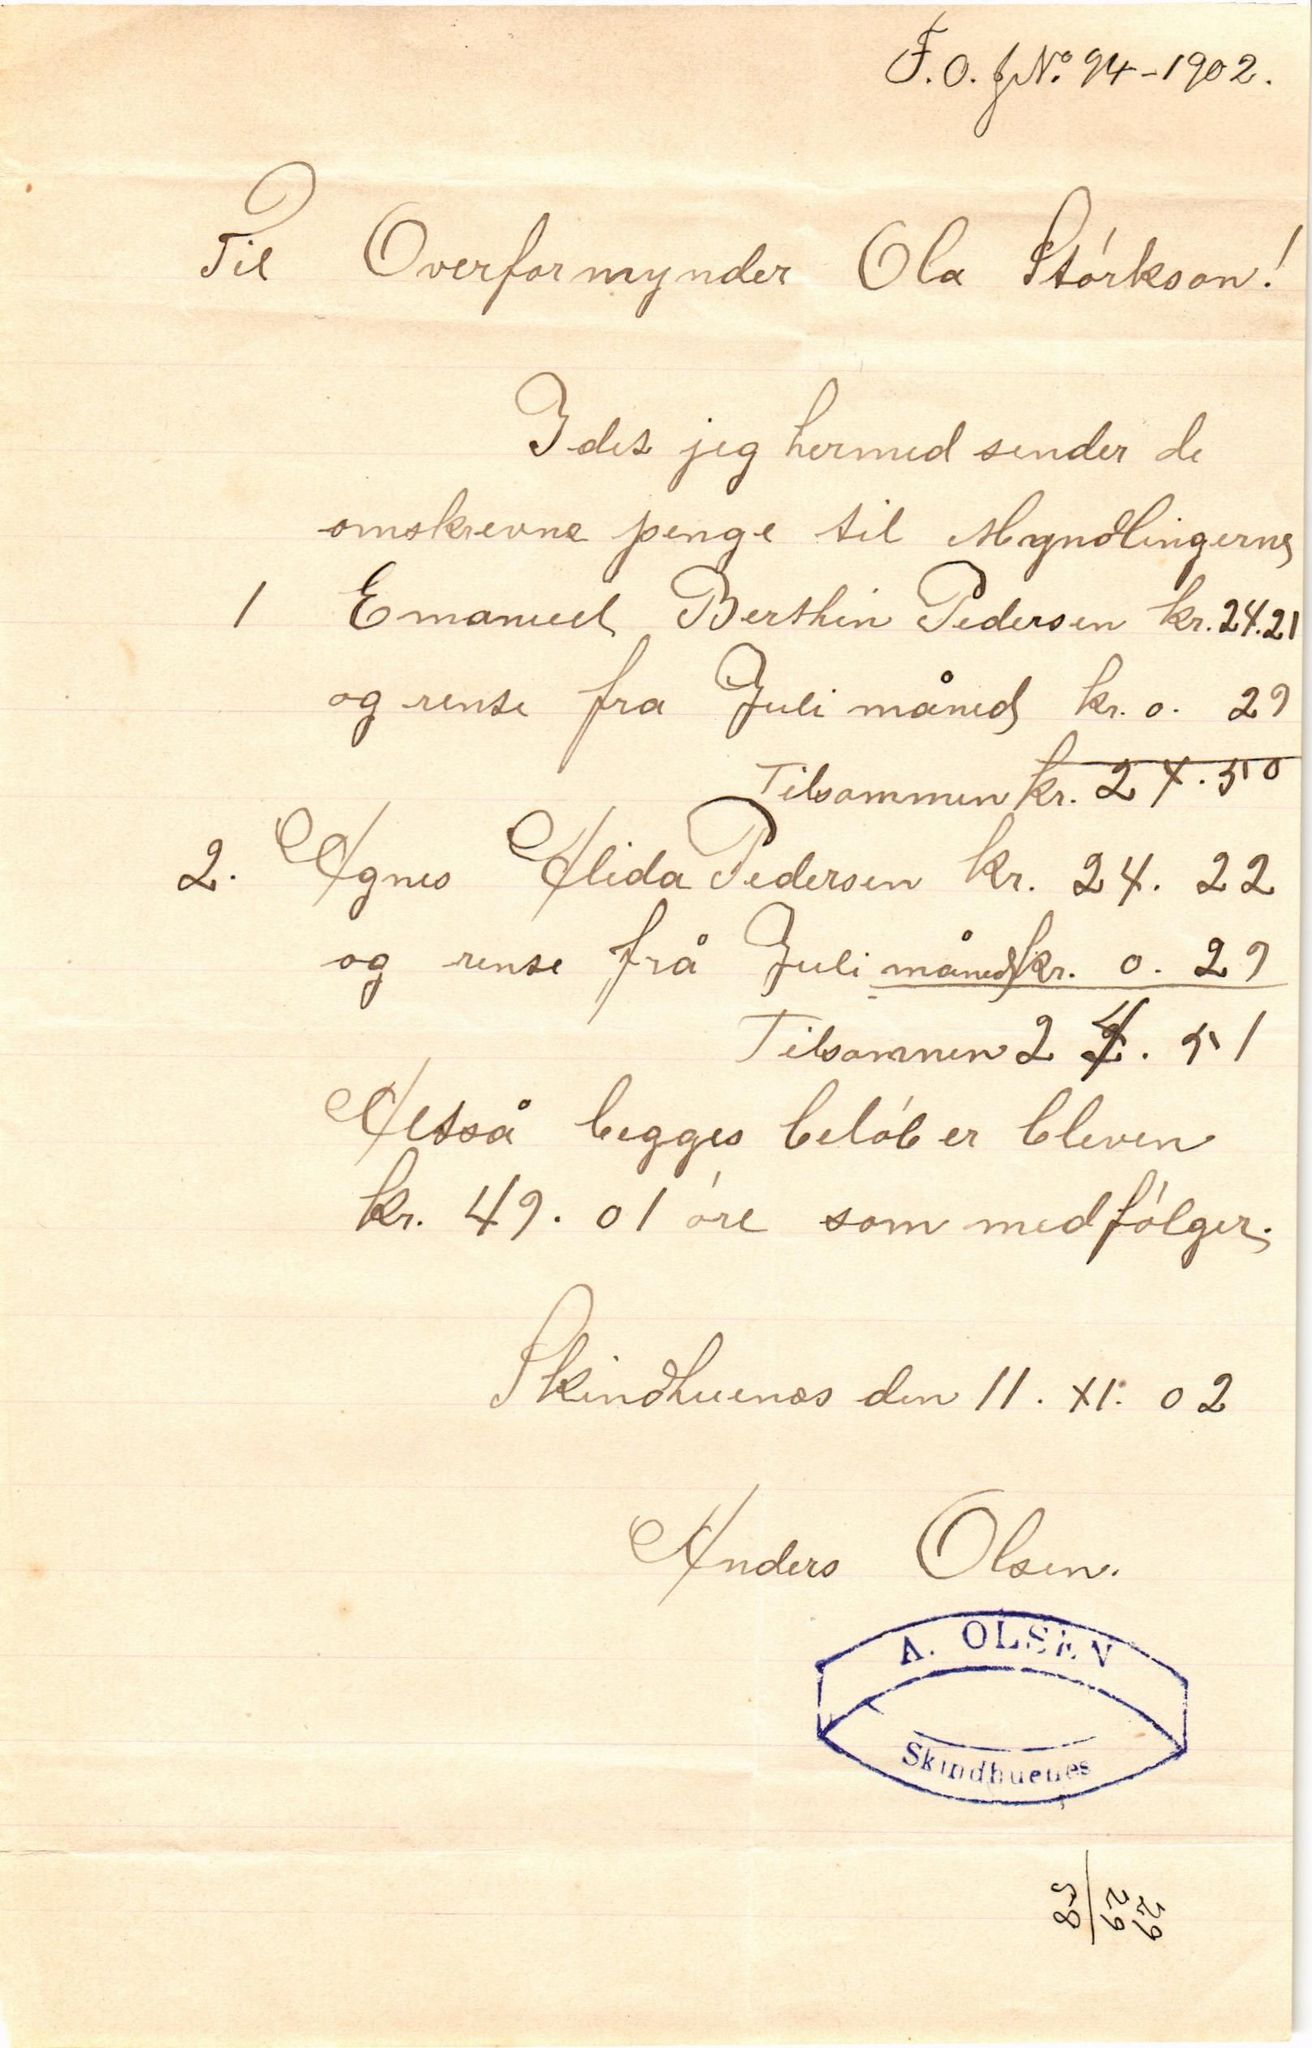 F.O. J№ 94-1902.
Til Overformynder Ola Stórkson!
Idet jeg hermed sender de
omskrevne penge til Myndlingerne
1 Emanuel Berthin Pedersen kr. 24.21
og rente fra Juli måned kr. 0. 29
Tilsammen kr. 24.50
2. Agnes Alida Pedersen kr. 24. 22
og rente frå Juli måned kr. 0. 29
Tilsammen 24. 51
Altså begges belób er bleven
kr. 49. 01 óre som medfólger.
Skindhuenes den 11. XI. 02
Anders Olsen.
A. OLSEN
Skindhuenes
29
29
58